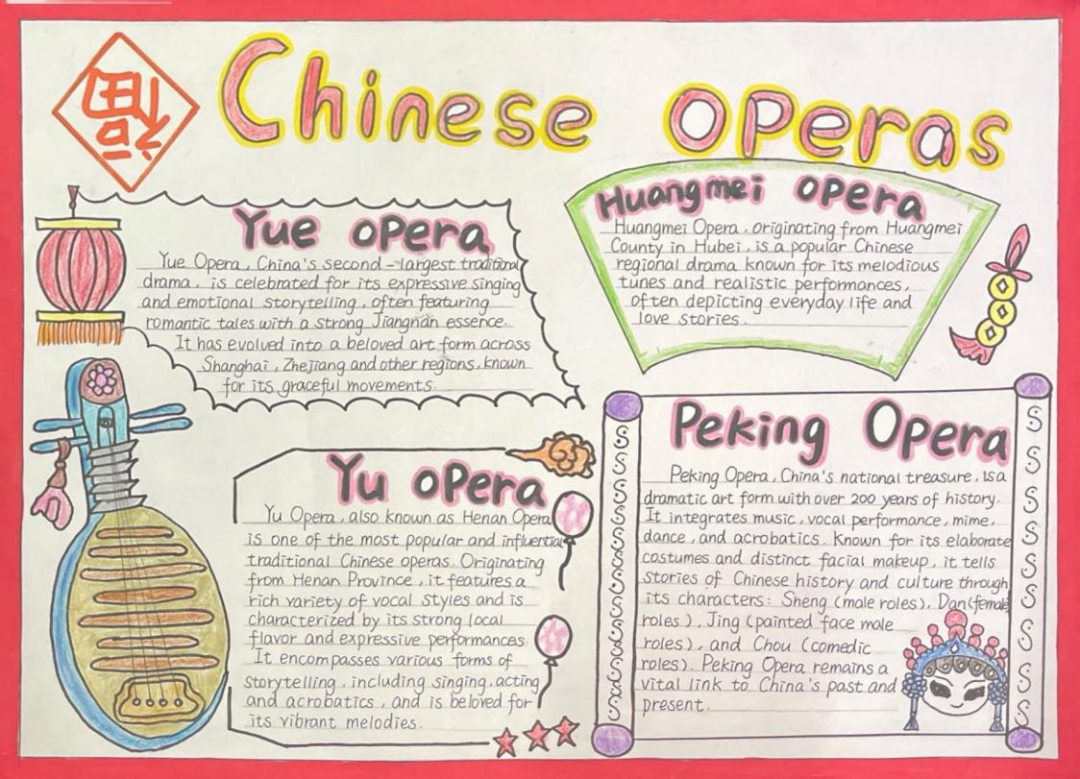 福
Chinese Operas
Yue Opera
Yue Opera, China's second-largest traditional
drama, is celebrated for its expressive singing
and emotional storytelling, often featuring
romantic tales with a strong Jiangnan essence.
It has evolved into a beloved art form across
Shanghai, Zhejiang and other regions, known
for its graceful movements.
Huangmei Opera
Huangmei Opera, originating from Huangmei
County in Hubei, is a popular Chinese
regional drama known for its melodious
tunes and realistic performances,
often depicting everyday life and
love stories.
Yu Opera
Yu Opera, also known as Henan Opera
is one of the most popular and influential
traditional Chinese operas. Originating
from Henan Province, it features a
rich variety of vocal styles and is
characterized by its strong local
flavor and expressive performances.
It encompasses various forms of
storytelling, including singing, acting
and acrobatics, and is beloved for
its vibrant melodies.
Peking Opera
Peking Opera, China's national treasure, is a
dramatic art form with over 200 years of history.
It integrates music, vocal performance, mime,
dance, and acrobatics. Known for its elaborate
costumes and distinct facial makeup, it tells
stories of Chinese history and culture through
its characters: Sheng (male roles), Dan (female
roles), Jing (painted face male
roles), and Chou (comedic
roles). Peking Opera remains a
vital link to China's past and
present.